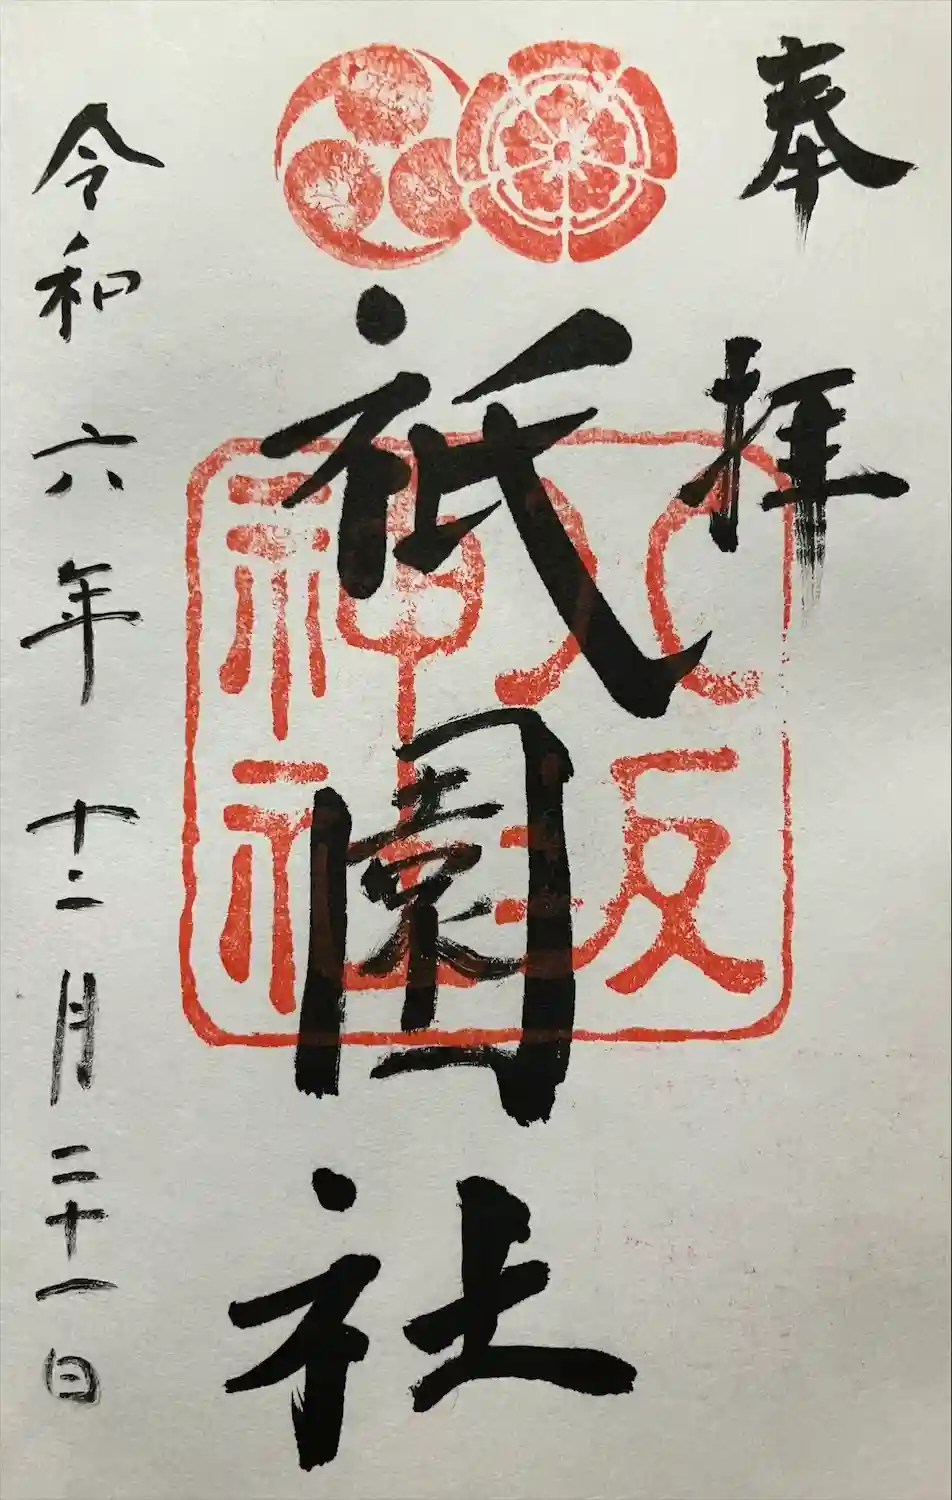 奉拝
八坂神社
祇園社
令和六年十二月二十一日